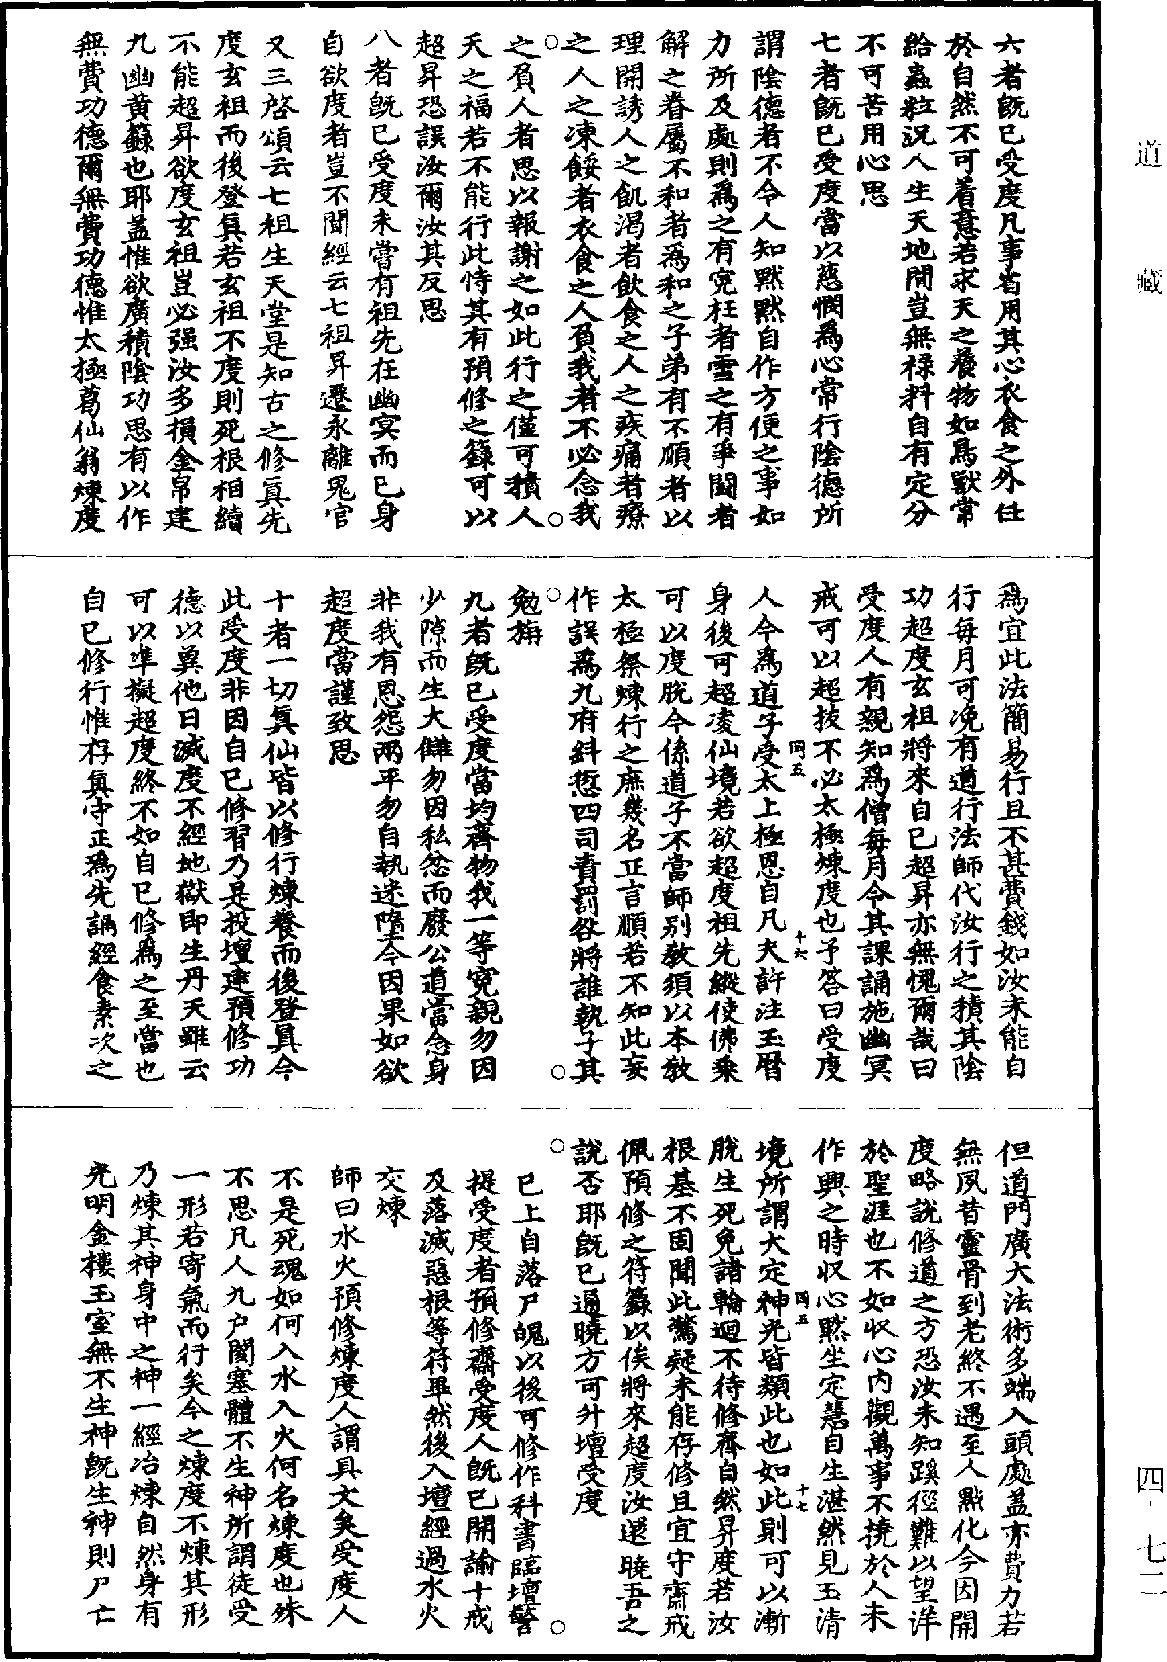 道藏
四·七二
六者旣已受度凡事省用其心衣食之外任
於自然不可着意若求天之養物如鳥獸常
給蟲粒況人生天地間豈無祿料自有定分
不可苦用心思
七者旣已受度當以慈憫爲心常行陰德所
謂陰德者不令人知黙黙自作方便之事如
力所及處則爲之有寃枉者雪之有爭鬪者
解之眷屬不和者爲和之子弟有不順者以
理開誘人之飢渴者飲食之人之疾痛者療
之人之凍餒者衣食之人負我者不必念我
之負人者思以報謝之如此行之僅可積人
天之福若不能行此恃其有預修之籙可以
超昇恐誤汝爾汝其反思
八者旣已受度未嘗有祖先在幽冥而已身
自欲度者豈不聞經云七祖昇遷永離鬼官
又三啓頌云七祖生天堂是知古之修眞先
度玄祖而後登眞若玄祖不度則死根相續
不能超昇欲度玄祖豈必强汝多損金帛建
九幽黄籙也耶蓋惟欲廣積陰功思有以作
無費功德爾無費功德惟太極葛仙翁煉度
爲宜此法簡易行且不甚費錢如汝未能自
行每月可浼有道行法師代汝行之積其陰
功超度玄祖將來自已超昇亦無愧爾哉曰
受度人有親知爲僧每月令其課誦施幽冥
戒可以超拔不必太極煉度也予答曰受度
人今爲道子受太上極恩自凡夫許注玉曆
身後可超凌仙境若欲超度祖先縱使佛乗
可以度脫今係道子不當師别敎須以本敎
太極祭煉行之庶幾名正言順若不知此妄
作誤爲九府糾愆四司責罰咎將誰執予其
勉旃
九者旣已受度當均齊物我一等寃親勿因
少隙而生大讎勿因私忿而廢公道當念身
非我有恩怨兩平勿自執迷隨夫今因果如欲
超度當謹致思
十者一切眞仙皆以修行煉養而後登眞今
此受度非因自已修習乃是投壇建預修功
德以冀他日滅度不經地獄即生丹天雖云
可以凖擬超度終不如自已修爲之至當也
自已修行惟存眞守正爲先誦經食素次之
但道門廣大法術多端入頭處蓋亦費力若
無夙昔靈骨到老終不遇至人點化今因開
度略說修道之方恐汝未知蹊徑難以望洋
於聖涯也不如収心內觀萬事不撓於人未
作興之時収心黙坐定慧自生湛然見玉清
境所謂大定神光皆類此也如此則可以漸
脫生死免諸輪迴不待修齋自然昇度若汝
根基不固聞此驚疑未能存修且宜守齋戒
佩預修之符籙以俟將來超度汝還曉吾之
說否耶旣已通曉方可升壇受度
已上自落尸魄以後可修作科書臨壇警
提受度者預修齋受度人旣已開諭十戒
及落滅惡根等符畢然後入壇經過水火
交煉
師曰水火預修煉度人謂具文矣受度人
不是死魂如何入水入火何名煉度也殊
不思凡人九户闔塞體不生神所謂徒受
一形若寄氣而行矣今之煉度不煉其形
乃煉其神身中之神一經冶煉自然身有
光明金樓玉室無不生神旣生神則尸亡
岡五
十六
岡五
十七